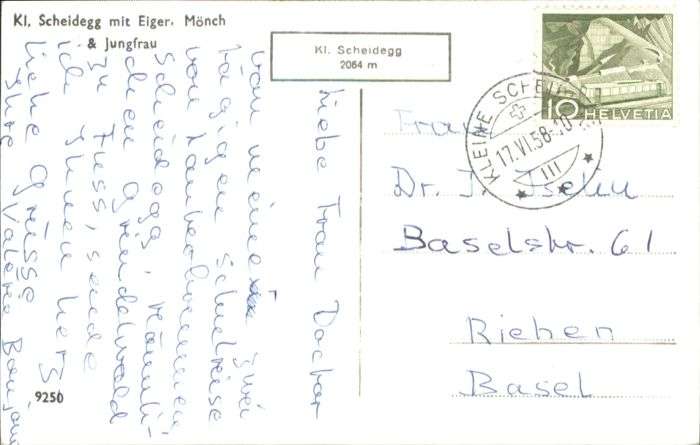 Kl. Scheidegg mit Eiger, Mönch
& Jungfrau
Kl. Scheidegg
2064 m
Liebe Frau Doctor
von meiner zwei
tägigen Schulreise
von Lauterbrunnen
Scheidegg, nämli-
chen Grindelwald
zu Fuss, sende
ich Ihnen herz
liche Grüsse
Ihre Valérie
9250
KLEINE SCHEIDEGG
17.VI.58-10
III
10 HELVETIA
Frau
Dr. J. Iselin
Baselstr. 61
Riehen
Basel